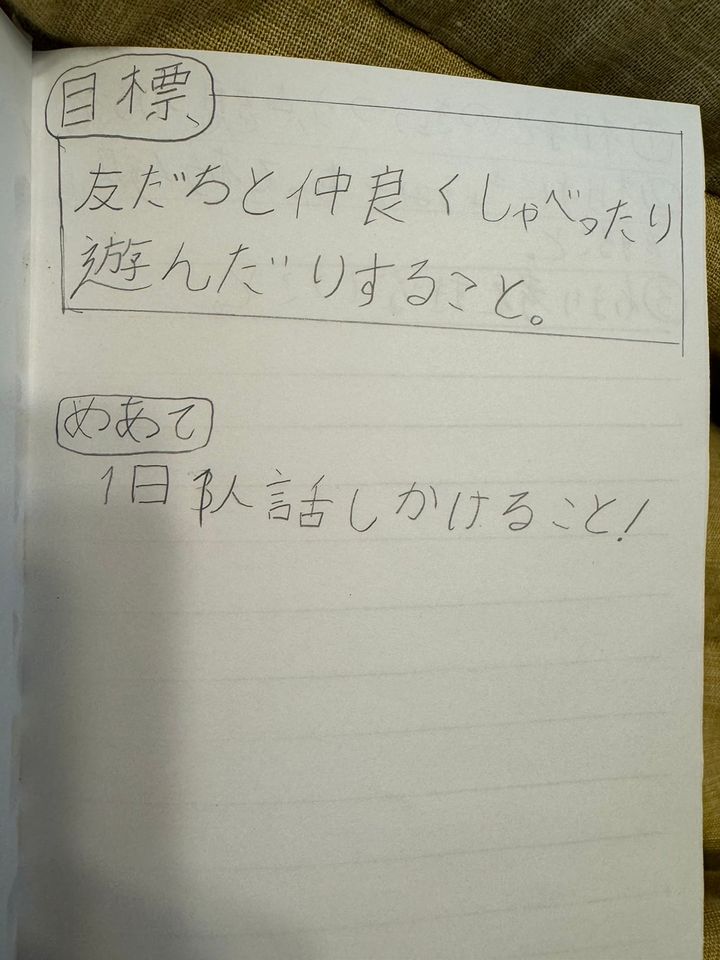 目標
友だちと仲良くしゃべったり
遊んだりすること。
めあて
1日1人話しかけること!